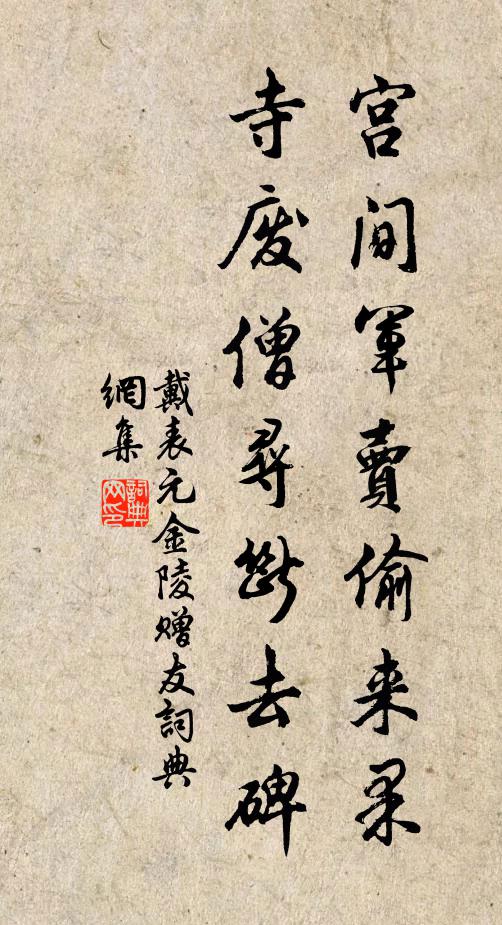 宫間軍賣偷来果
寺廢僧尋斷去碑
戴表元金陵贈友詞典
網集
詞典網印